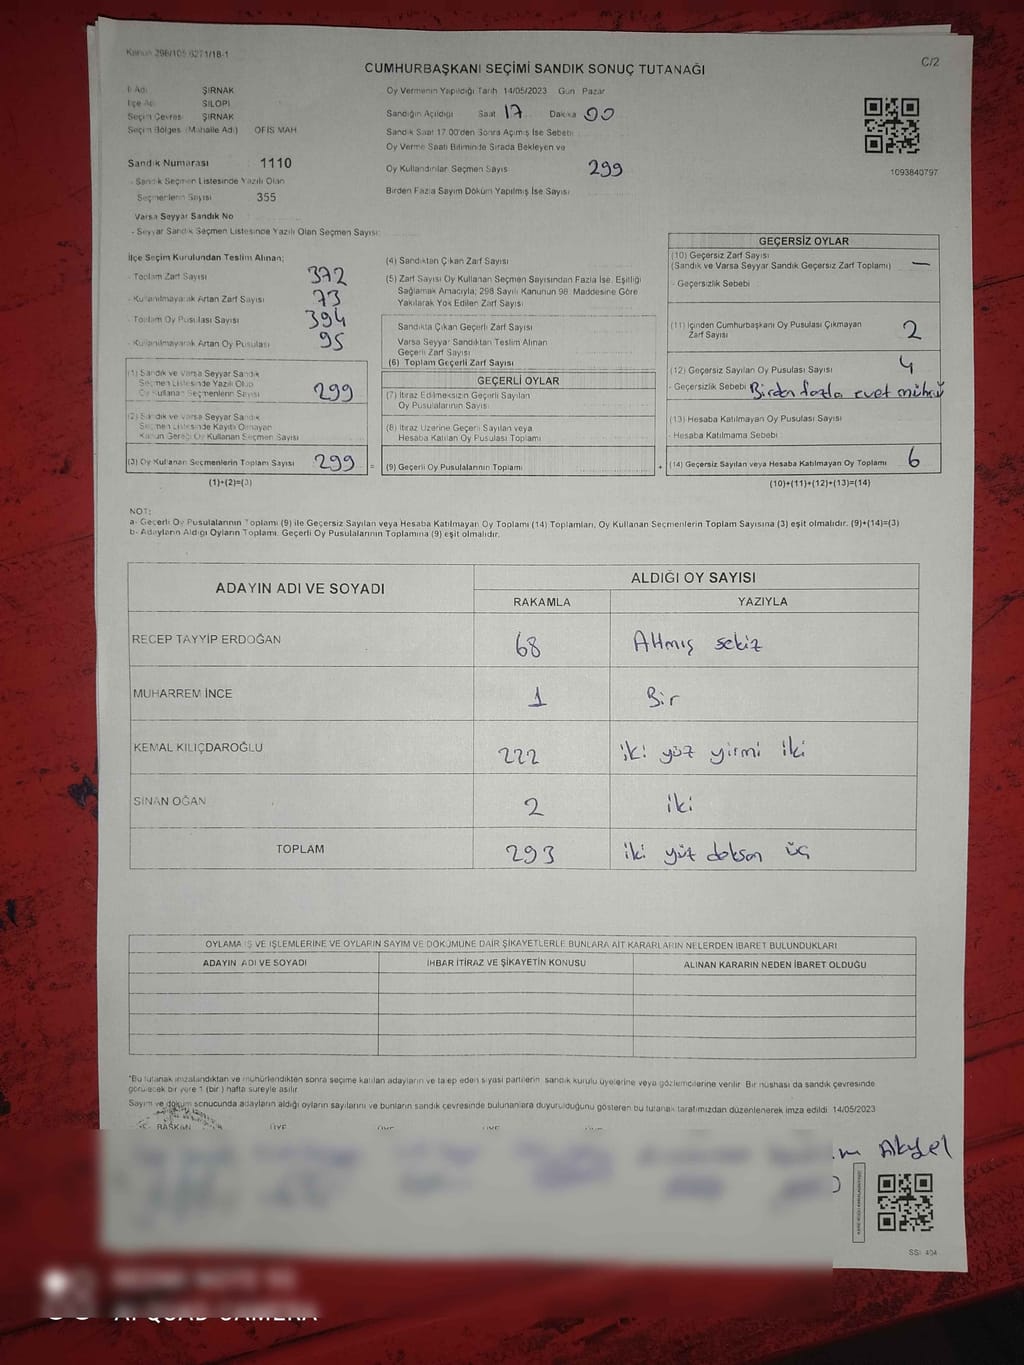 Kanun 298/105 6271/18-1
C/2
CUMHURBAŞKANI SEÇİMİ SANDIK SONUÇ TUTANAĞI
İl Adı ŞIRNAK
İlçe Adı SİLOPİ
Seçim Çevresi ŞIRNAK
Seçim Bölgesi (Mahalle Adı) OFİS MAH
Sandık Numarası 1110
- Sandık Seçmen Listesinde Yazılı Olan
Seçmenlerin Sayısı 355
Varsa Seyyar Sandık No
- Seyyar Sandık Seçmen Listesinde Yazılı Olan Seçmen Sayısı
Oy Vermenin Yapıldığı Tarih 14/05/2023 Gün Pazar
Sandığın Açıldığı Saat 17 Dakika 00
Sandık Saat 17:00'den Sonra Açılmış İse Sebebi
Oy Verme Saati Bitiminde Sırada Bekleyen ve
Oy Kullandırılan Seçmen Sayısı 299
Birden Fazla Sayım Döküm Yapılmış İse Sayısı
1093840797
İlçe Seçim Kurulundan Teslim Alınan;
- Toplam Zarf Sayısı 372
- Kullanılmayarak Artan Zarf Sayısı 73
- Toplam Oy Pusulası Sayısı 394
- Kullanılmayarak Artan Oy Pusulası 95
(1) Sandık ve Varsa Seyyar Sandık
Seçmen Listesinde Yazılı Olup
Oy Kullanan Seçmenlerin Sayısı 299
(2) Sandık ve Varsa Seyyar Sandık
Seçmen Listesinde Kayıtlı Olmayan
Kanun Gereği Oy Kullanan Seçmen Sayısı
(3) Oy Kullanan Seçmenlerin Toplam Sayısı 299 =
(1)+(2)=(3)
(4) Sandıktan Çıkan Zarf Sayısı
(5) Zarf Sayısı Oy Kullanan Seçmen Sayısından Fazla İse, Eşitliği
Sağlamak Amacıyla; 298 Sayılı Kanunun 98. Maddesine Göre
Yakılarak Yok Edilen Zarf Sayısı
Sandıkta Çıkan Geçerli Zarf Sayısı
Varsa Seyyar Sandıktan Teslim Alınan
Geçerli Zarf Sayısı
(6) Toplam Geçerli Zarf Sayısı
GEÇERLİ OYLAR
(7) İtiraz Edilmeksizin Geçerli Sayılan
Oy Pusulalarının Sayısı
(8) İtiraz Üzerine Geçerli Sayılan veya
Hesaba Katılan Oy Pusulası Toplamı
(9) Geçerli Oy Pusulalarının Toplamı +
GEÇERSİZ OYLAR
(10) Geçersiz Zarf Sayısı
(Sandık ve Varsa Seyyar Sandık Geçersiz Zarf Toplamı) —
- Geçersizlik Sebebi
(11) İçinden Cumhurbaşkanı Oy Pusulası Çıkmayan
Zarf Sayısı 2
(12) Geçersiz Sayılan Oy Pusulası Sayısı 4
- Geçersizlik Sebebi Birden fazla evet mührü
(13) Hesaba Katılmayan Oy Pusulası Sayısı
- Hesaba Katılmama Sebebi
(14) Geçersiz Sayılan veya Hesaba Katılmayan Oy Toplamı 6
(10)+(11)+(12)+(13)=(14)
NOT:
a- Geçerli Oy Pusulalarının Toplamı (9) ile Geçersiz Sayılan veya Hesaba Katılmayan Oy Toplamı (14) Toplamları, Oy Kullanan Seçmenlerin Toplam Sayısına (3) eşit olmalıdır. (9)+(14)=(3)
b- Adayların Aldığı Oyların Toplamı, Geçerli Oy Pusulalarının Toplamına (9) eşit olmalıdır.
ADAYIN ADI VE SOYADI
ALDIĞI OY SAYISI
RAKAMLA YAZIYLA
RECEP TAYYİP ERDOĞAN 68 Altmış sekiz
MUHARREM İNCE 1 Bir
KEMAL KILIÇDAROĞLU 222 iki yüz yirmi iki
SİNAN OĞAN 2 iki
TOPLAM 293 iki yüz doksan üç
OYLAMA İŞ VE İŞLEMLERİNE VE OYLARIN SAYIM VE DÖKÜMÜNE DAİR ŞİKAYETLERLE BUNLARA AİT KARARLARIN NELERDEN İBARET BULUNDUKLARI
ADAYIN ADI VE SOYADI İHBAR İTİRAZ VE ŞİKAYETİN KONUSU ALINAN KARARIN NEDEN İBARET OLDUĞU
*Bu tutanak imzalandıktan ve mühürlendikten sonra seçime katılan adayların ve talep eden siyasi partilerin sandık kurulu üyelerine veya gözlemcilerine verilir. Bir nüshası da sandık çevresinde
görülecek bir yere 1 (bir) hafta süreyle asılır
Sayım ve döküm sonucunda adayların aldığı oyların sayılarını ve bunların sandık çevresinde bulunanlara duyurulduğunu gösteren bu tutanak tarafımızdan düzenlenerek imza edildi. 14/05/2023
BAŞKAN ÜYE
Akyel
SSİ: 404
AI QUAD CAMERA